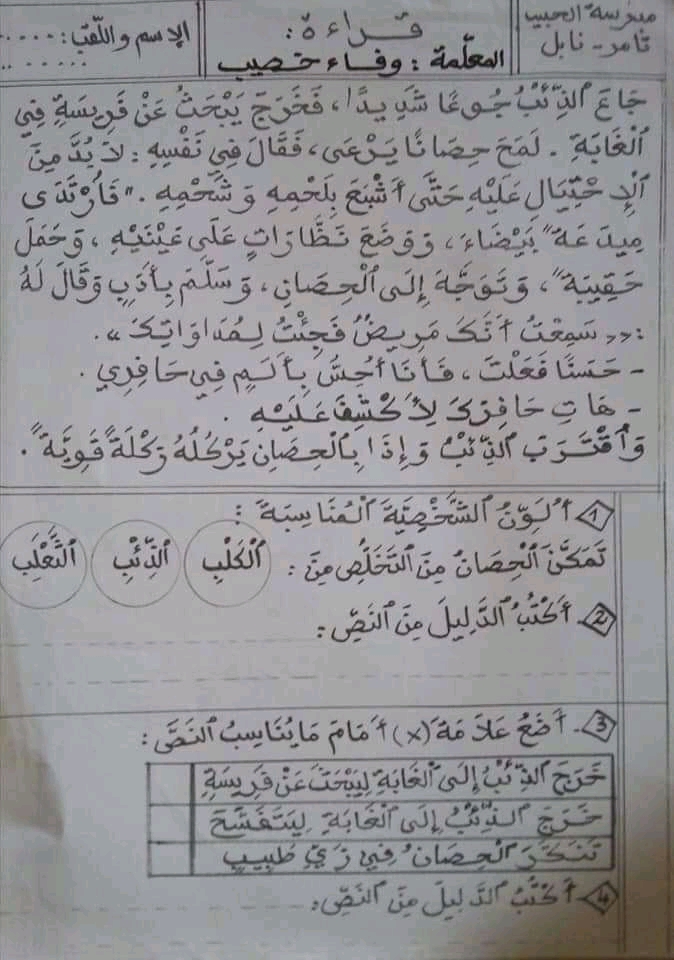 مدرسة الحبيب
ثامر - نابل
قراءة:
المعلّمة: وفاء خصيب
الإسم واللّقب: .....
......
جَاعَ الذِّئْبُ جُوعًا شَدِيدًا، فَخَرَجَ يَبْحَثُ عَنْ فَرِيسَةٍ فِي
الْغَابَةِ. لَمَحَ حِصَانًا يَرْعَى، فَقَالَ فِي نَفْسِهِ: لاَ بُدَّ مِنَ
الْإِحْتِيَالِ عَلَيْهِ حَتَّى أَشْبَعَ بِلَحْمِهِ وَشَحْمِهِ." فَارْتَدَى
مِيدَعَةً بَيْضَاءَ، وَوَضَعَ نَظَّارَاتٍ عَلَى عَيْنَيْهِ، وَحَمَلَ
حَقِيبَةً، وَتَوَجَّهَ إِلَى الْحِصَانِ، وَسَلَّمَ بِأَدَبٍ وَقَالَ لَهُ
:«سَمِعْتُ أَنَّكَ مَرِيضٌ فَجِئْتُ لِمُدَاوَاتِكَ».
- حَسَنًا فَعَلْتَ، فَأَنَا أُحِسُّ بِأَلَمٍ فِي حَافِرِي.
- هَاتِ حَافِرَكَ لِأَكْشِفَ عَلَيْهِ.
وَاقْتَرَبَ الذِّئْبُ وَإِذَا بِالْحِصَانِ يَرْكُلُهُ رَكْلَةً قَوِيَّةً.
1 - أُلَوِّنُ الشَّخْصِيَّةَ الْمُنَاسِبَةَ:
تَمَكَّنَ الْحِصَانُ مِنَ التَّخَلُّصِ مِنَ: الْكَلْبِ الذِّئْبِ الثَّعْلَبِ
2 - أَكْتُبُ الدَّلِيلَ مِنَ النَّصِّ:
3 - أَضَعُ عَلاَمَةَ (x) أَمَامَ مَا يُنَاسِبُ النَّصَّ:
خَرَجَ الذِّئْبُ إِلَى الْغَابَةِ لِيَبْحَثَ عَنْ فَرِيسَةٍ
خَرَجَ الذِّئْبُ إِلَى الْغَابَةِ لِيَتَفَسَّحَ
تَنَكَّرَ الْحِصَانُ فِي زَيِّ طَبِيبٍ
4 - أَكْتُبُ الدَّلِيلَ مِنَ النَّصِّ: